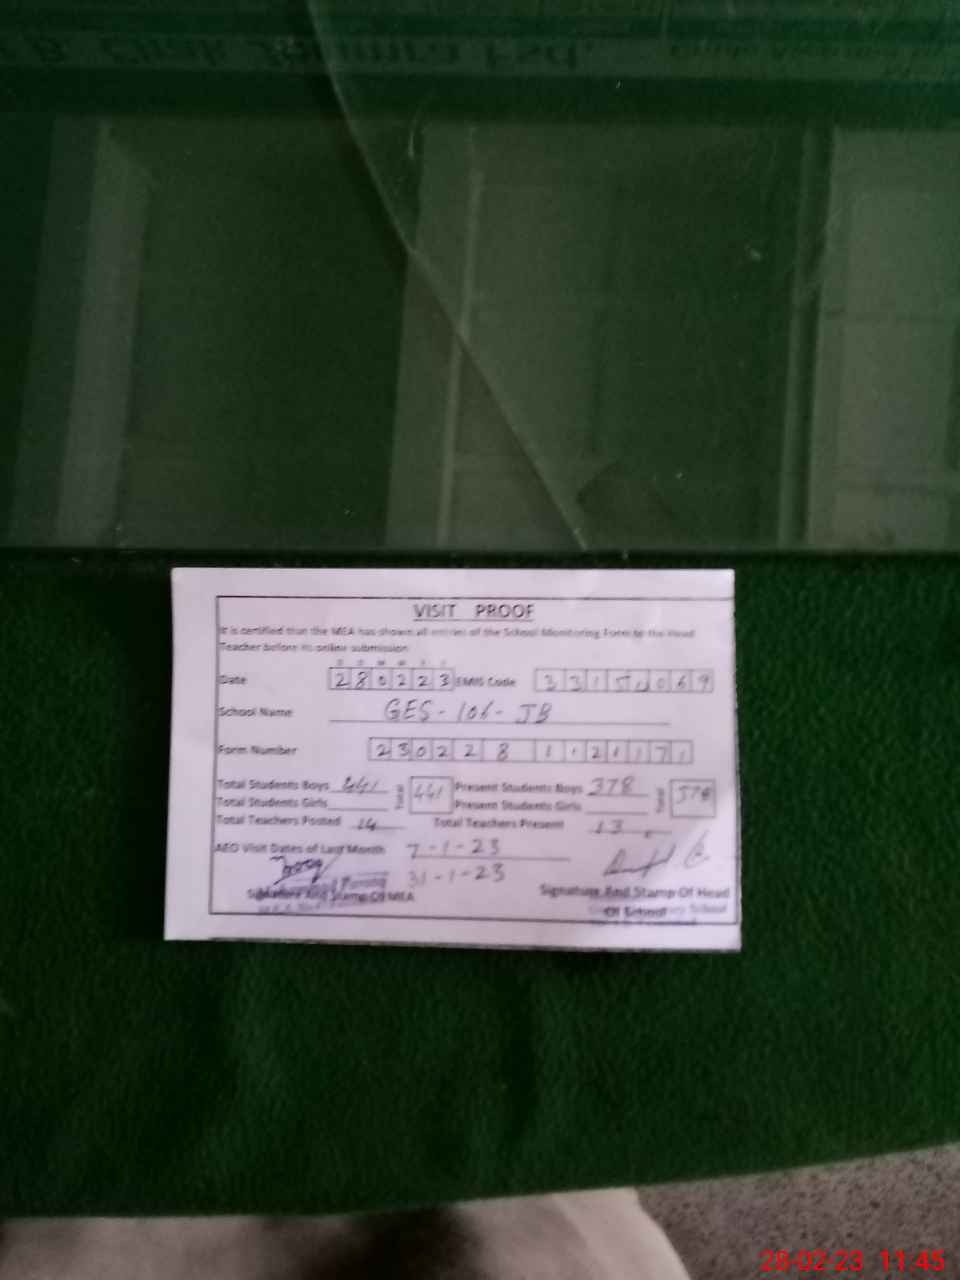 VISIT PROOF
It is certified that the MEA has shown all entries of the School Monitoring Form to the Head
Teacher before its online submission
D D M M Y Y
Date 280223 EMIS Code 33150069
School Name GES-106-JB
Form Number 230228 1121171
Total Students Boys 441 Total 441 Present Students Boys 378 Total 378
Total Students Girls Present Students Girls
Total Teachers Posted 14 Total Teachers Present 13
AEO Visit Dates of Last Month 7-1-23
31-1-23
Signature And Stamp Of MEA Signature And Stamp Of Head
Of School
28-02-23 11:45